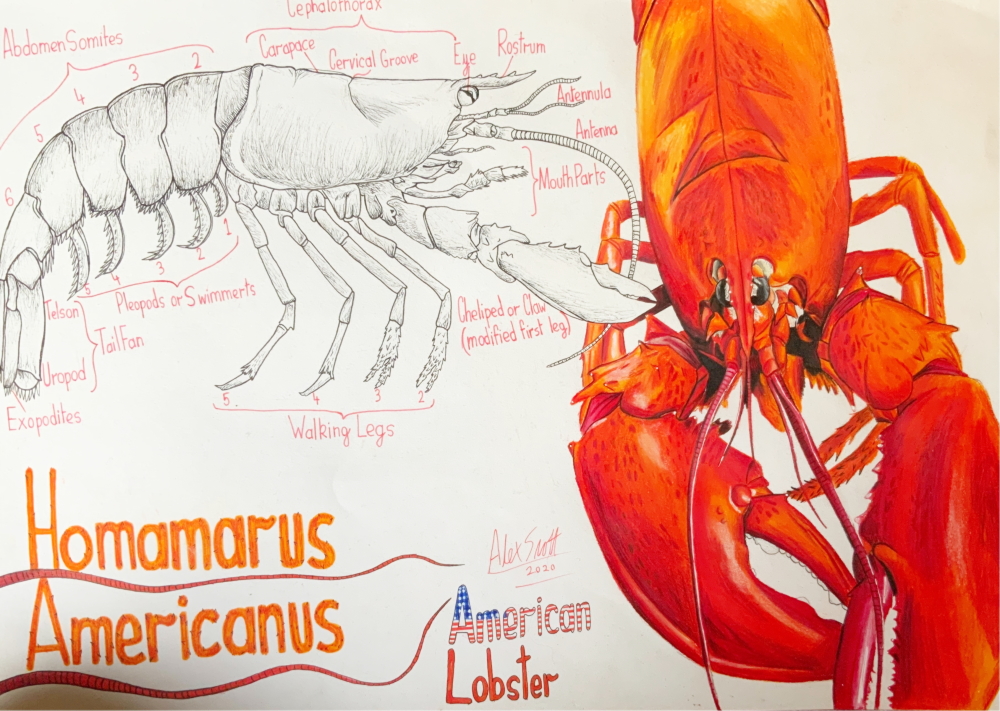 Cephalothorax
Abdomen Somites
Carapace
Cervical Groove
Eye
Rostrum
2
3
4
5
6
Antennula
Antenna
Mouth Parts
1
2
3
4
5
Pleopods or Swimmerts
Telson
Tail Fan
Uropod
Exopodites
Cheliped or Claw
(modified first leg)
5.
4
3
2
Walking Legs
Homamarus
Americanus
Alex Scott
2020
American
Lobster